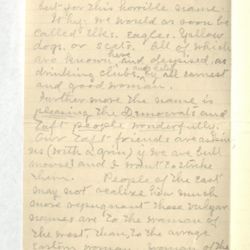 but for this horrible name.
Why: we would as soon be
called Elks. Eagles. Yellow
dogs. or Scots. all of which
are known and despised, as
drinking clubs, by all earnest
and good woman.
Further more the name is
pleasing the Democrats and
Taft people wonderfully.
Our Taft friends are asking
us (with a grin) if we are bull
moose) and I want to strike
them. People of the East
may not realize how much
more repugnant these vulgar
names are to the woman of
the West than to the average
eastern woman. Woman of the